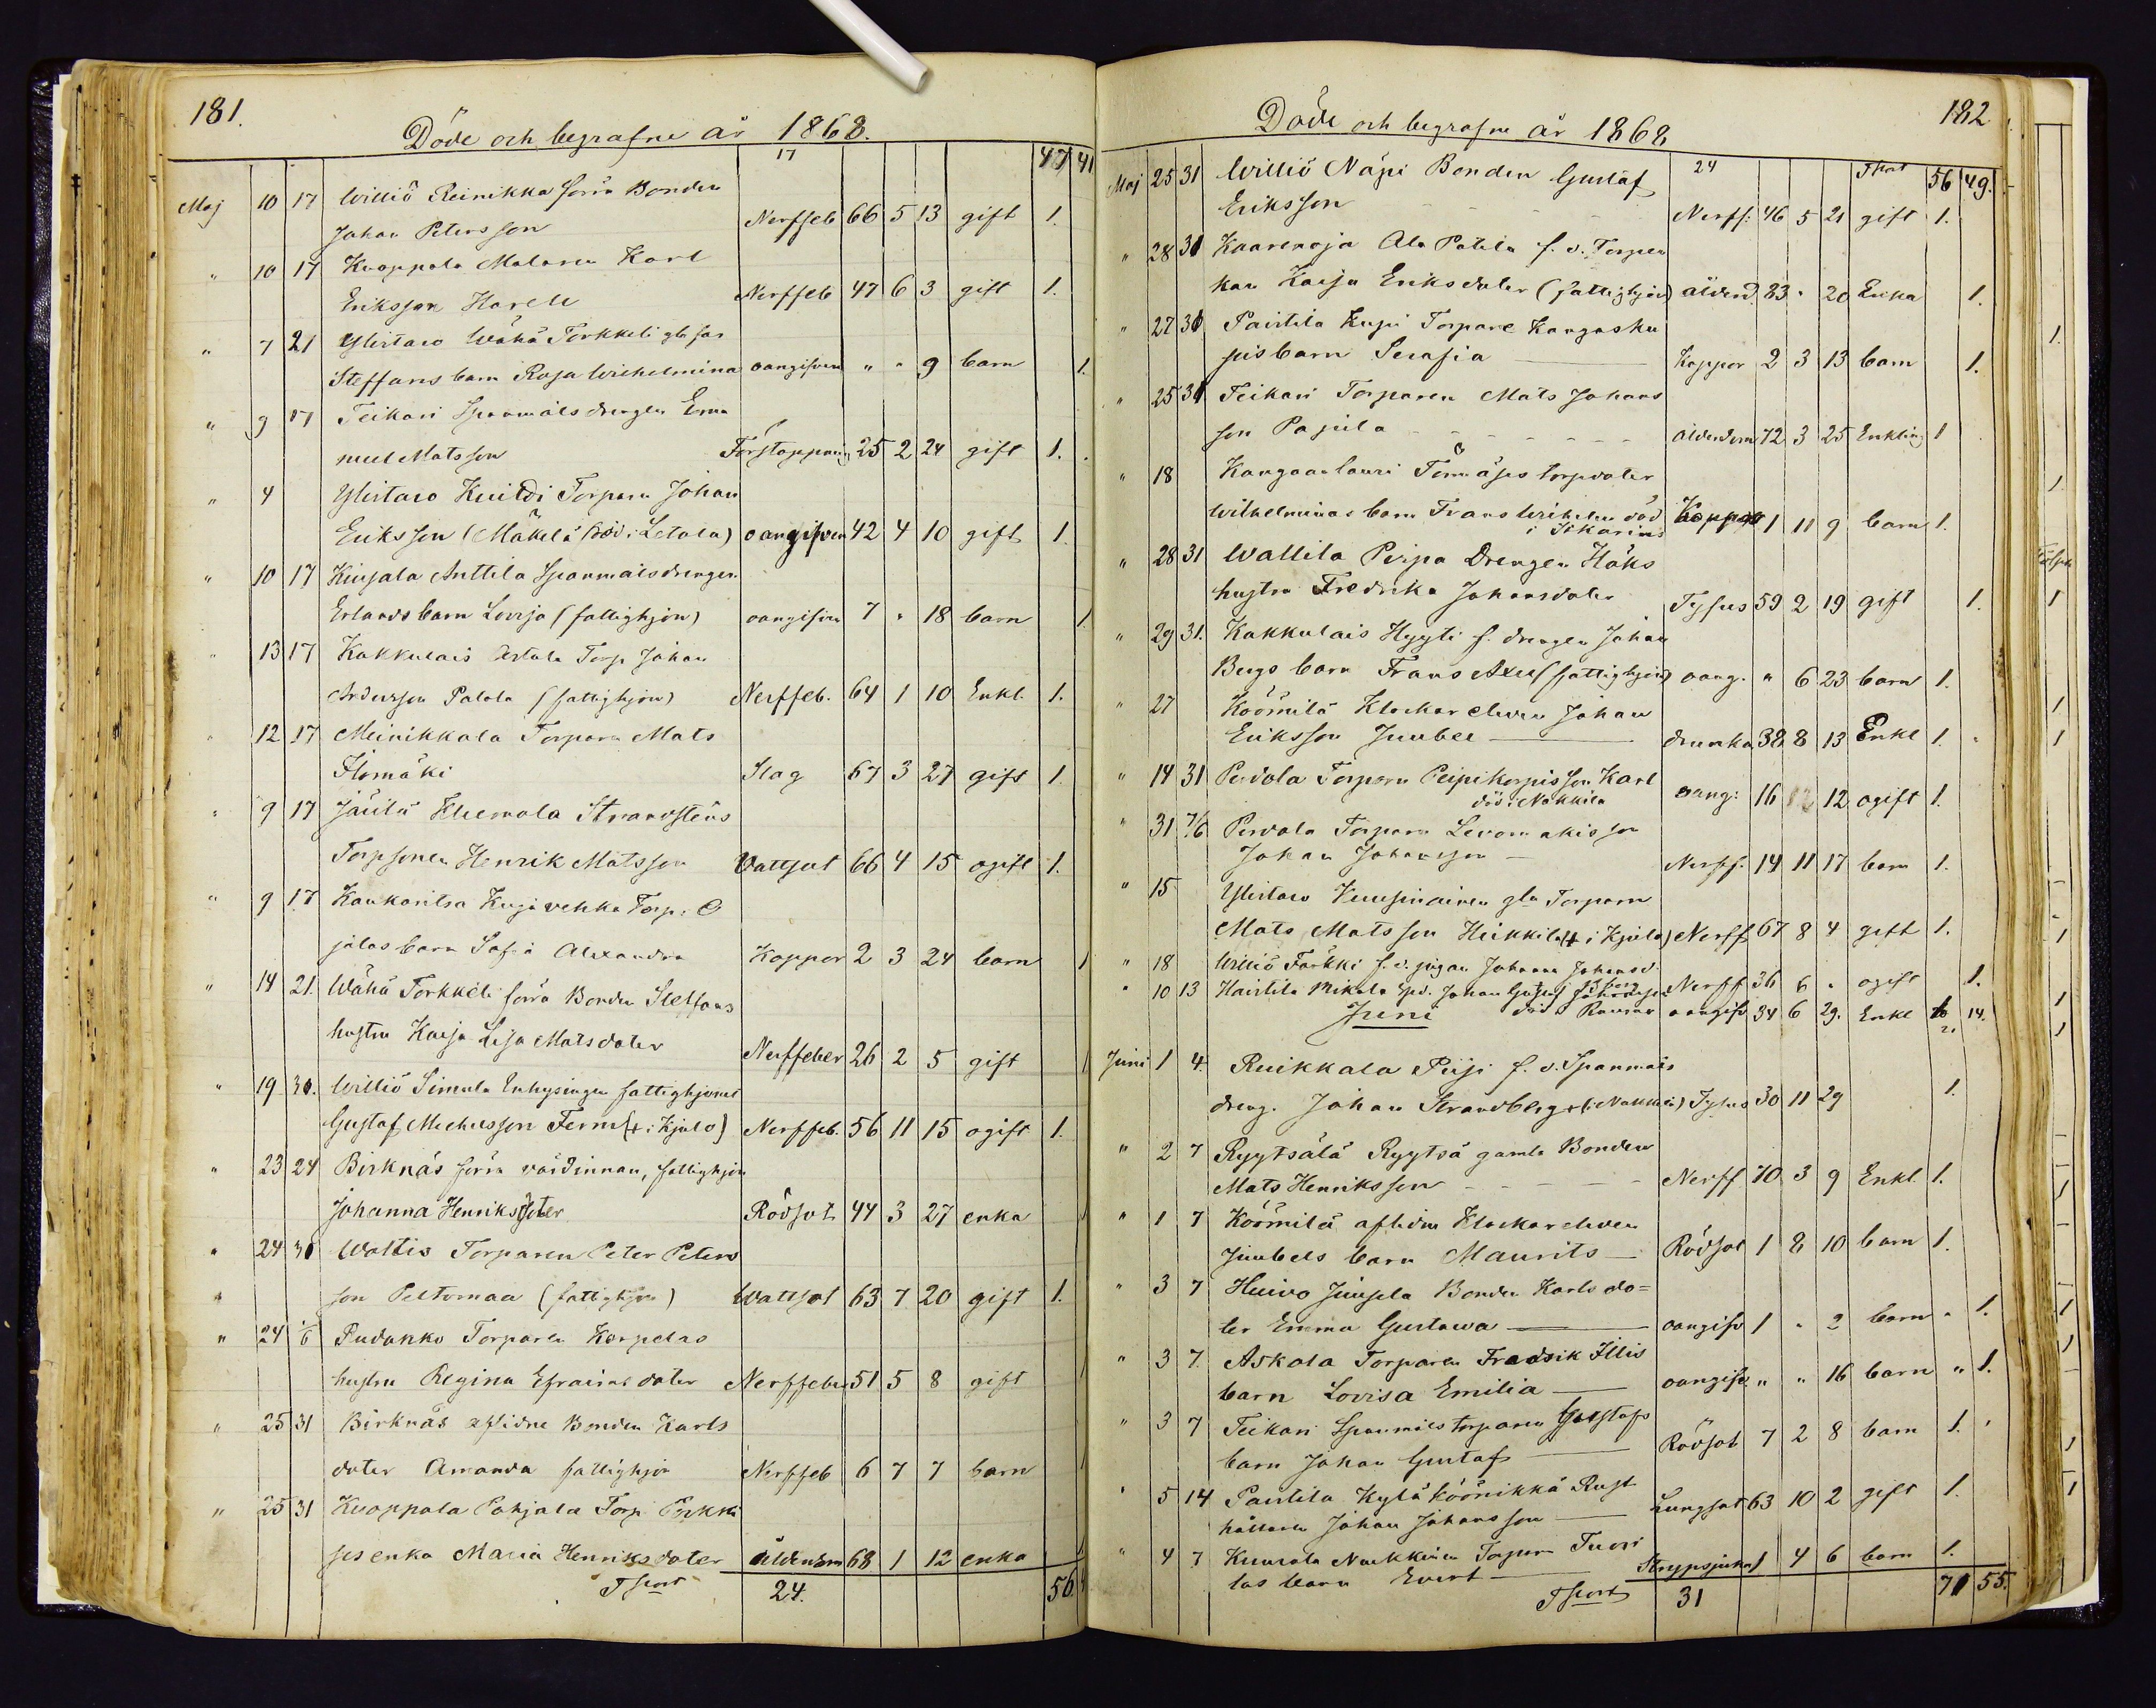 181.
Döde och begrafne år 1868.
17 47 41
Maj 10 17 Williö Reinikka förra Bonden
Johan Petersson Nerffeb 66 5 13 gift 1.
" 10 17 Kuoppala Målaren Karl
Eriksson Harell Nerffeb 47 6 3 gift 1.
" 7 21 Ylistaro Wähä Torkkeli
Steffans barn Rosa Wilhelmina oangifven " " 9 barn 1.
" 9 17 Teikari Spanmåls drengen Ema
nuel Matsson Förstoppning 25 2 24 gift 1.
" 4 Ylistaro Kuitti Torparn Johan
Eriksson (Mäkelä död i Letala) oangifven 42 4 10 gift 1.
" 10 17 Kiusala Anttila Spanmålsdrengen
Erlands barn Lovisa (fattighjon) oangifven 7 " 18 barn 1
" 13 17 Kakkulais Torp Johan
Andersson Palola (fattighjon) Nerffeb. 64 1 10 Enkl. 1.
" 12 17 Meinikkala Torparn Mats
Ilomäki Slag 67 3 27 gift 1.
" 9 17 Jäälä Strandstens
Torpsonen Henrik Matsson Vattsot 66 4 15 ogift 1.
" 9 17 Kaukaritsa Torp: O
jalas barn Sofia Alexandra Koppor 2 3 24 barn 1
" 14 21. Wähä Torkkeli förra Bonden Steffans
hustru Kaisa Lisa Matsdoter Nerffeber 26 2 5 gift 1
" 19 30. Williö Simula Enhysingen fattighjonet
Gustaf Michelsson Ferm († i Kjulo) Nerffeb. 56 11 15 ogift 1.
" 23 24 Birknäs förra värdinnan, fattighjon
Johanna Henriksdoter Rödsot 44 3 27 enka
" 24 30 Wattis Torparen Peter Peters
son Peltomaa (fattighjon) Wattsot 63 7 20 gift 1.
" 24 1/6 Pudanko Torparen Korpelas
hustru Regina Efraimsdoter Nerffeber 51 5 8 gift
" 25 31 Birknäs aflidne Bonden Karls
doter Amanda fattighjon Nerffeb 6 7 7 barn
" 25 31 Kuoppala Pohjala Torp
enka Maria Henriksdoter ålderdom 68 1 12 enka
Tsport 24. 56
182.
Döde och begrafne år 1868
24 Tsport 56 49.
Maj 25 31 Williö Näpi Bonden Gustaf
Eriksson Nerff: 46 5 21 gift 1.
" 28 31 Kaarenoja Ala Patela f. d. Torpen
kan Kaisa Eriksdoter (fattighjon) ålderd. 83 " 20 Enka 1.
" 27 31 Paistila Kupi Torpare Kangasku
pis barn Serafia Koppor 2 3 13 barn 1.
" 25 31 Teikari Torparen Mats Johans
son Papula ålderdom 72 3 25 Enkling 1
" 18 Kangaanlauri torpdoter
Wilhelminas barn Frans Wilhelm död Koppor 1 11 9 barn 1.
i St Karins
" 28 31 Wallila Peipa Drengen Höks
hustru Fredrika Johansdoter Tyfus 59 2 19 gift 1.
" 29 31. Kakkulais Hyyti f. drengen Johan
Bergs barn Frans Axel (fattighjon) oang. " 6 23 barn 1.
" 27 Köömilä Klockar eleven Johan
Eriksson Juubel drunkn 38 8 13 Enkl 1.
" 14 31 Perdola Torparn Peipikorpis son Karl
död i Nakkila oang: 16 12 12 ogift 1.
" 31 7/6 Perdola Torparn Levonmäkis son
Johan Johansson Nerff. 14 11 17 barn 1.
" 15 Ylistaro Kuusinainen gla Torparn
Mats Matsson Heikkilä († i Kjula) Nerff 67 8 4 gift 1.
" 18 Williö Färkki f. d. pigan Johanna Johansd. Nerff 36 6 " ogift 1.
" 10 13 Haistila Mikola Johan Gustaf Johansson
Juni död i Raumo oangif 34 6 29. Enkl 14.
Juni 1 4. Ruikkala Piiji f. d. Spanmåls
dreng. Johan Strandberg († i Nakkila) Tyfus 30 11 29 1.
" 2 7 Ryytsälä Ryytsä gamla Bonden
Mats Henriksson Nerff 70 3 9 Enkl. 1.
" 1 7 Köömilä aflidne Klockar eleven
Juubels barn Maurits Rödsot 1 8 10 barn 1.
" 3 7 Huivo Juusela Bonden Karls do=
ter Emma Gustawa oangifv 1 " 2 barn " 1.
" 3 7. Askola Torparen Fredrik Illis
barn Lovisa Emilia oangifv. " " 16 barn " 1.
" 3 7 Teikari Spanmåls torparen Gustafs
barn Johan Gustaf Rödsot 7 2 8 barn 1.
" 5 14 Paistila Kyläköönikkä Rust
hållaren Johan Johansson Lungsot 63 10 2 gift 1.
" 4 7 Kuurola Torparn Tuori
las barn Evert Strypsjukan 1 4 6 barn 1.
Tsport 31 71 55.